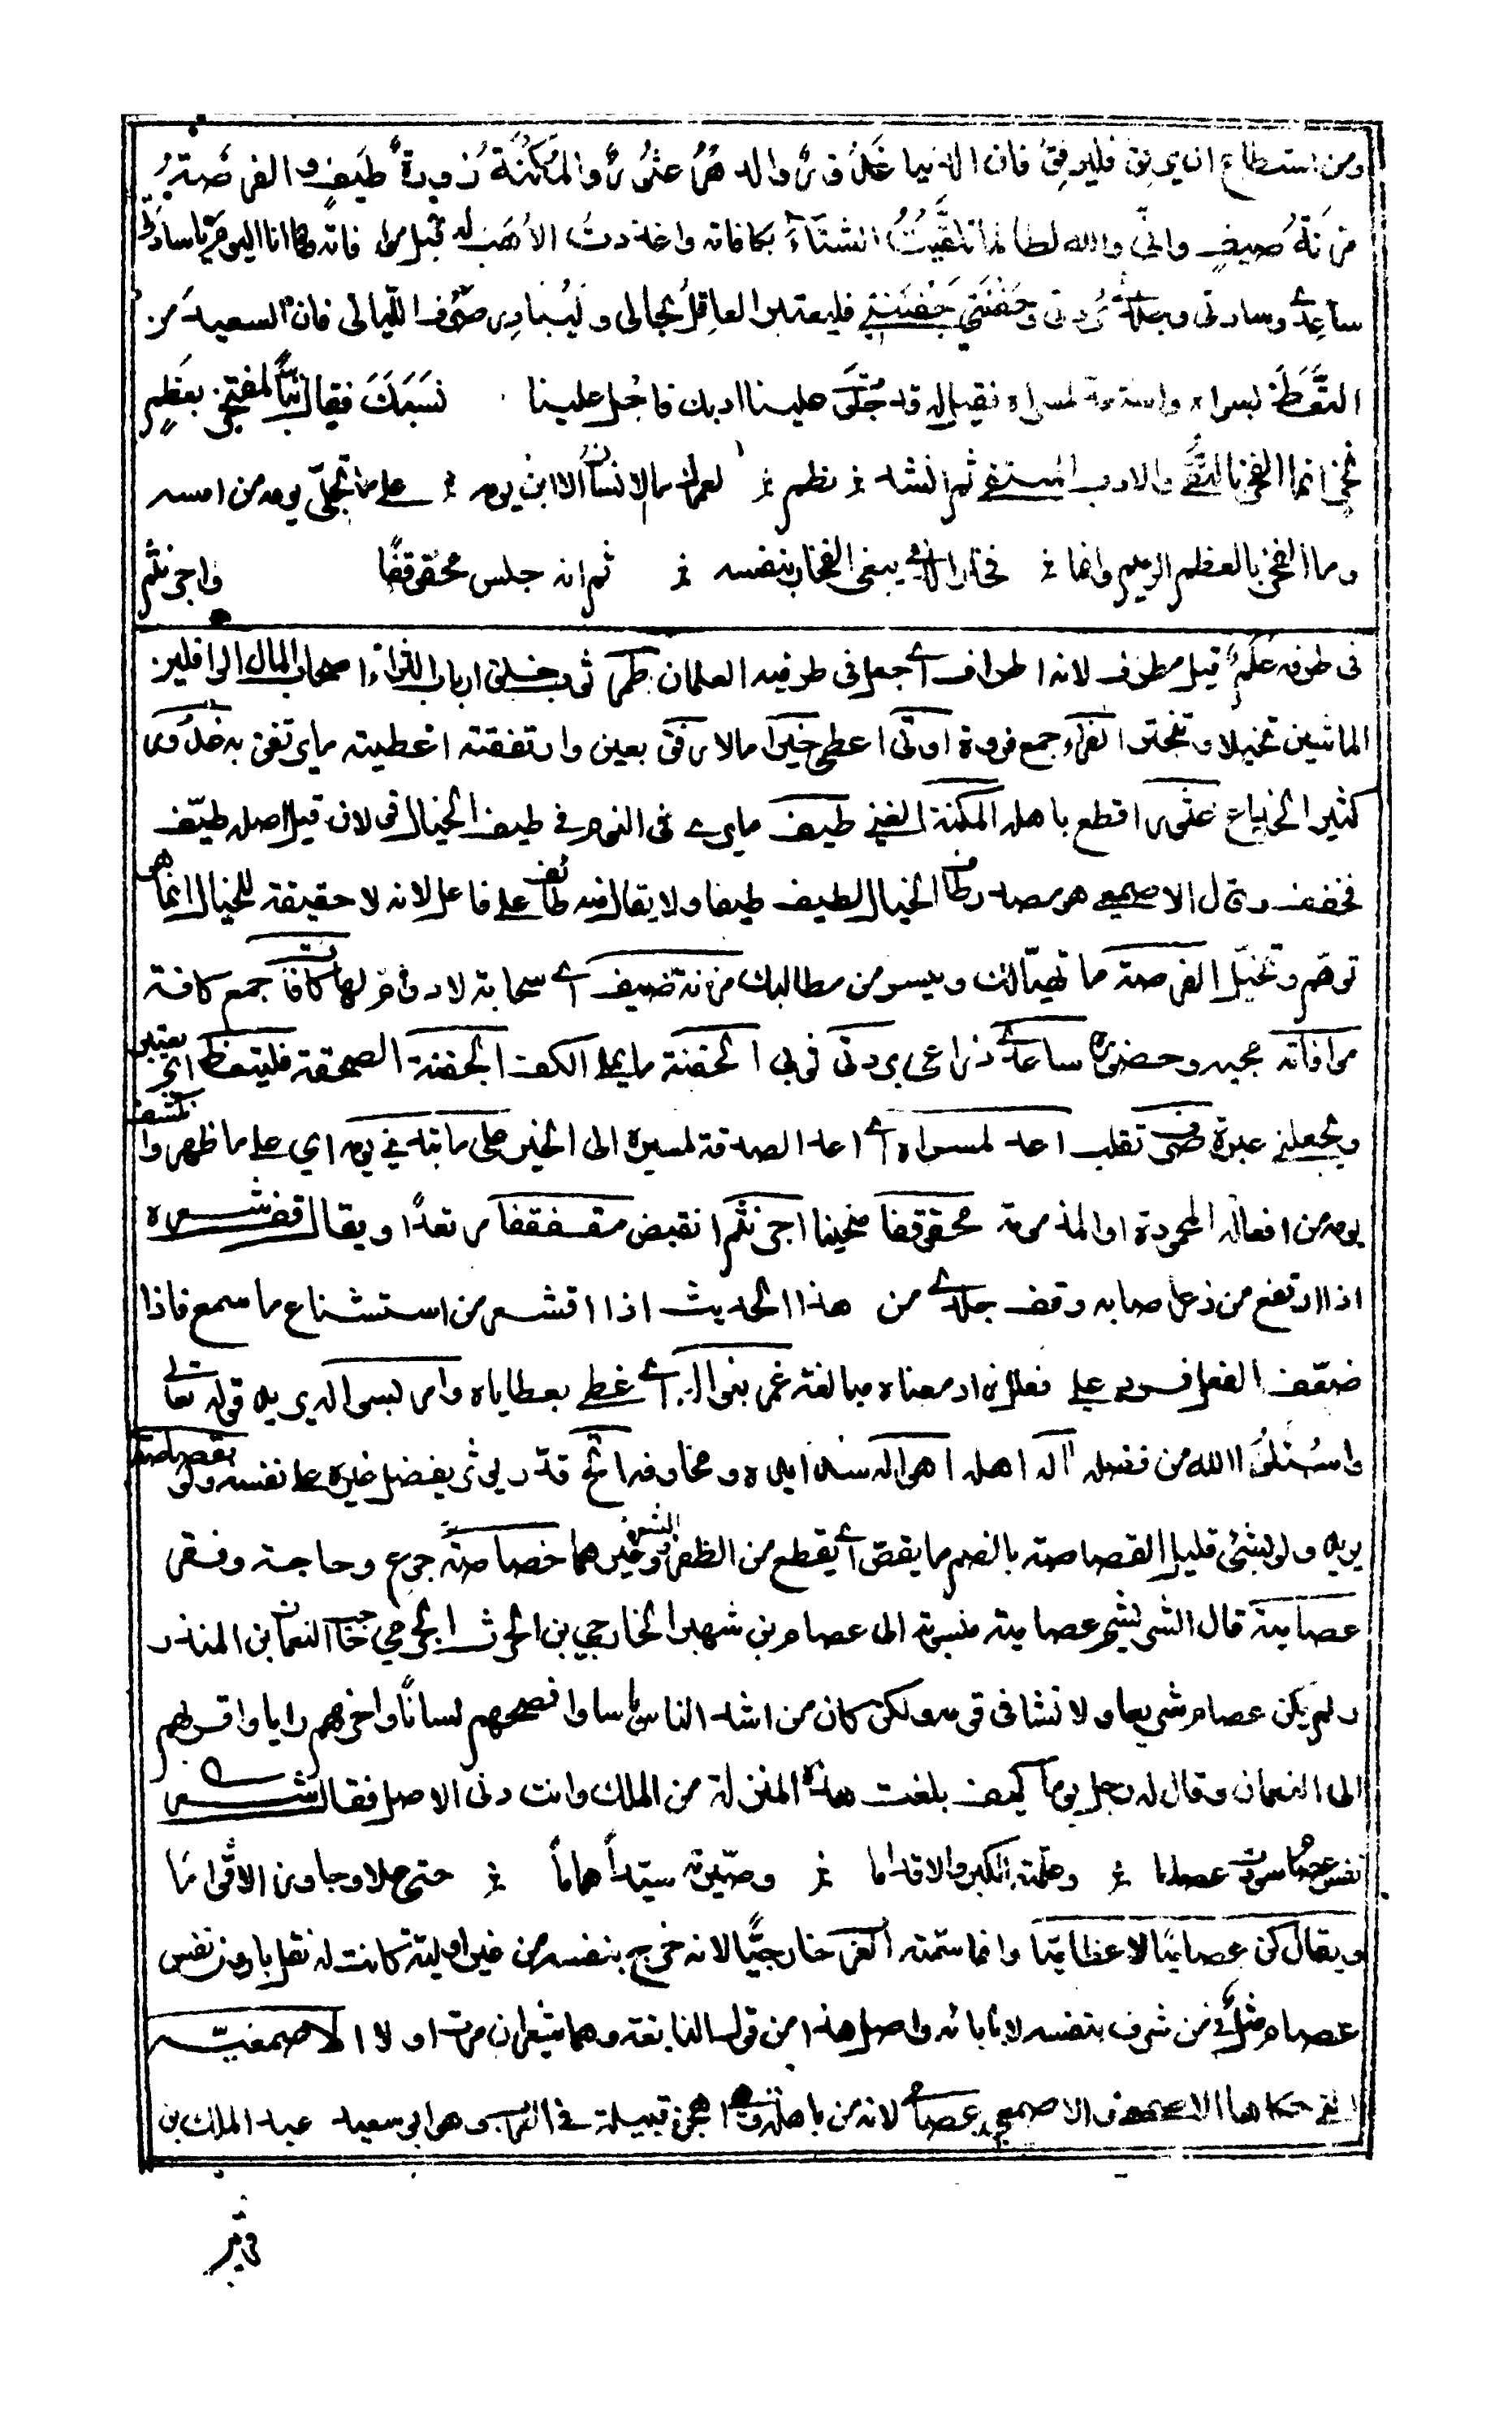 ومن استطاع ان يرفق فليرفق فان الدنيا غدور والدهر عثور والمكنة زورة طيف والفرصة
مزنة صيف واني والله لطالما تلقيت الشتاء بكافاته واعددت الأهب له قبل موافاته وها انا اليوم يا سادتي
ساعدي وسادتي وجلدتي بردتي وحفنتي جفنتي فليعتبر العاقل بحالي وليبادر صرف الليالي فان السعيد من
اتعظ بسواه واستعد لمسراه فقيل له قد جلوت علينا ادبك فاجل علينا نسبك فقال تبا لمفتخر بعظم
نخر انما الفخر بالتقى والادب المنتقى ثم انشد نظم لعمرك ما الانسان الا ابن يومه على ما تجلى يومه لا ابن امسه
وما الفخر بالعظم الرميم وانما فخار الذي يبغي الفخار بنفسه ثم انه جلس محقوقفا واجرنثم
في طرفه علم قيل مطرف لانه اطراف اي جعل في طرفيه العلمان ارباب الثراء اصحاب المال الرافلين
الماشين تخيلا وتبختر الفراء جمع فروة اوتي اعطي خيرا مالا رفق يعين وارتفقته اعطيته ما يرتفق به غدور
كثير الخداع عثور اقطع باهله المكنة الغنى طيف ما يرى في النوم طيف الخيال قيل اصله طيّف
فخفف وقال الاصمعي هو مصدر طاف الخيال لطيف طيفا ولا يقال فيه طائف على فاعل لانه لا حقيقة للخيال انما هو
توهم وتخيل الفرصة ما تهيأ لك وتيسر من مطالبك مزنة ضيف اي سحابة لا دوام لها كافات جمع كافة
موافاته مجيه وحضوره ساعدي ذراعي بردتي ثوبي الحفنة ما يملأ الكف الجفنة الصحفة فليتعظ اي يعتبر
ويجعلني عبرة صرف تقلب اعد لمسراه اي اعد الصدقة لمسيره الى الخير على ما تجلى يومه اي على ما ظهر وانكشف
يومه من افعاله المحمودة او المذمومة محقوقفا منحنيا اجرنثم انقبض مقفقفا مرتعدا ويقال قف شعره
اذا ارتفع من ذعر اصابه وقف جلدي من هذا الحديث اذا اقشعر من استشناع ما سمع فاذا
ضعّف الفعل فزيد على فعل زاد معناه مبالغة غمر بنواله اي غطى بعطاياه وامر بسؤاله يريد قوله تعالى
واسئلوا الله من فضله آله اهله اهواله شدايده ومخاوفه اتح قدر لي يؤثر يفضل غيره على نفسه ولو بقصاصة
يريد ولو بشئ قليل القصاصة بالضم ما يقص اي يقطع من الظفر والشعر وغيرهما خصاصة جوع وحاجة وفقر
عصامية قال الشريشي عصامية منسوبة الى عصام بن شهبر الخارجي بن الحرث الجرمي حاجب النعمان بن المنذر
ولم يكن عصام شريفا ولا نشا في قومه ولكن كان من اشد الناس باسا وافصحهم لسانا واحزمهم رايا واقربهم
الى النعمان وقال له رجل يوما كيف بلغت هذه المنزلة من الملك وانت دني الاصل فقال شعر
نفس عصام سودت عصاما وعلمته الكر والاقداما وصيرته سيدا هماما حتى علا وجاوز الاقواما
ويقال كن عصاميا لا عظاميا وانما سمته العرب خارجيا لانه خرج بنفسه من غير اولية كانت له نقل باروز نفس
عصام مثل في من شرف بنفسه لا بآبائه واصل هذا من قول النابغة وهما شيئان مرت اولا الاصمعية
التي حكاها الاصمعي والاصمعي عصامي لانه من باهلة وهي اهجن قبيلة في العرب هو ابو سعيد عبد الملك بن
قريب